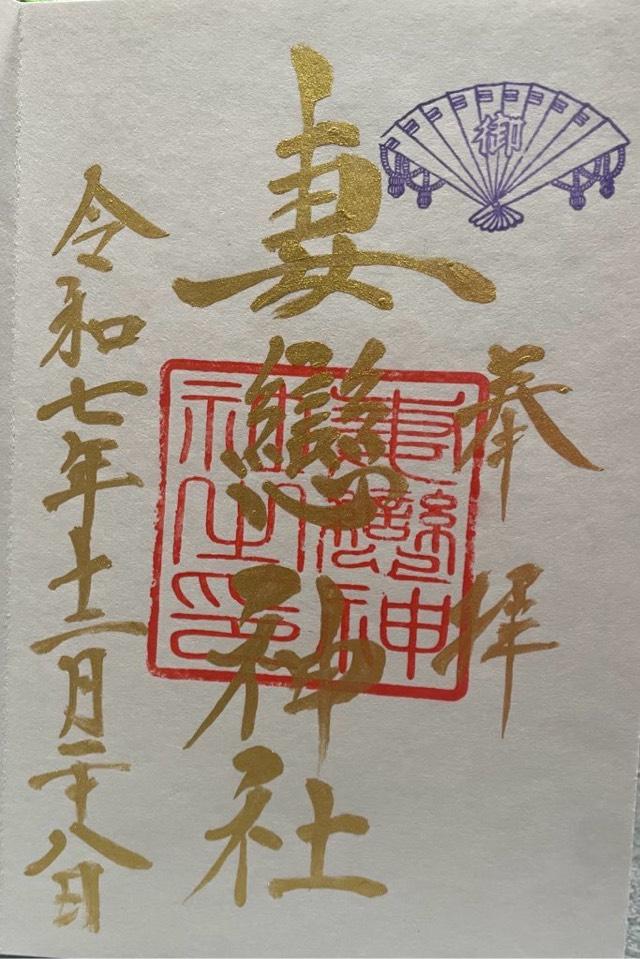 御
奉拝
妻戀神社
妻戀神
社之印
令和七年十二月二十八日